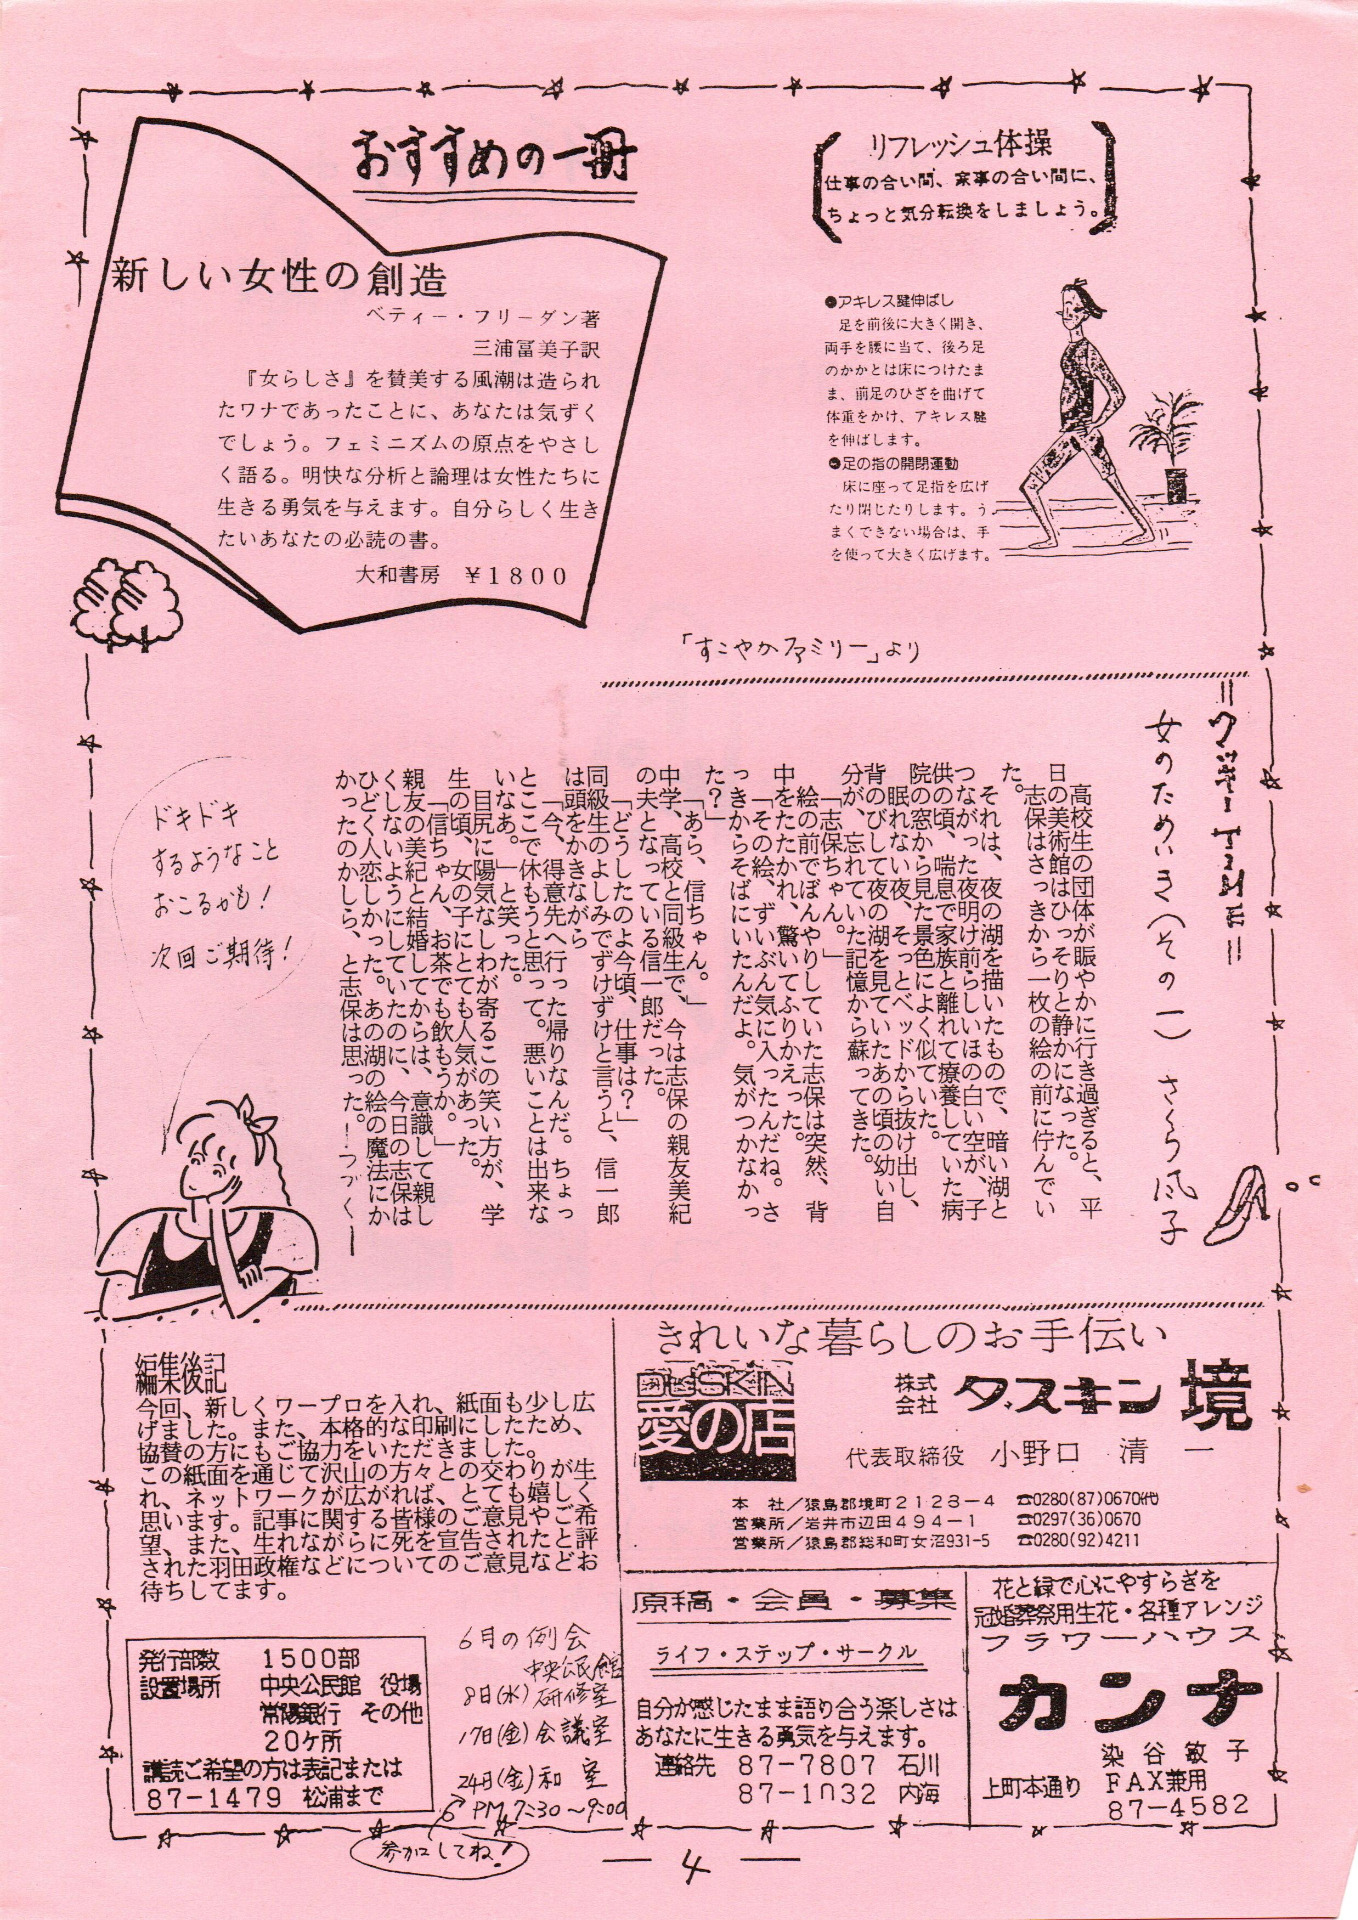 おすすめの一冊
新しい女性の創造
ベティー・フリーダン著
三浦冨美子訳
『女らしさ』を賛美する風潮は造られ
たワナであったことに、あなたは気ずく
でしょう。フェミニズムの原点をやさし
く語る。明快な分析と論理は女性たちに
生きる勇気を与えます。自分らしく生き
たいあなたの必読の書。
大和書房　￥1800
リフレッシュ体操
仕事の合い間、家事の合い間に、
ちょっと気分転換をしましょう。
●アキレス腱伸ばし
足を前後に大きく開き、
両手を腰に当て、後ろ足
のかかとは床につけたま
ま、前足のひざを曲げて
体重をかけ、アキレス腱
を伸ばします。
●足の指の開閉運動
床に座って足指を広げ
たり閉じたりします。う
まくできない場合は、手
を使って大きく広げます。
「すこやかファミリー」より
女のためいき（その一）　さくら風子
高校生の団体が賑やかに行き過ぎると、平
日の美術館はひっそりと静かになった。
志保はさっきから一枚の絵の前に佇んでい
た。
それは、夜の湖を描いたもので、暗い湖と
つながった夜明け前らしいほの白い空が、子
供の頃、喘息で家族と離れて療養していた病
院の窓から見た景色によく似ていた。
眠れない夜、そっとベッドから抜け出し、
背のびして夜の湖を見ていたあの頃の幼い自
分が、忘れていた記憶から蘇ってきた。
「志保ちゃん。」
絵の前でぼんやりしていた志保は突然、背
中をたたかれ、驚いてふりかえった。
「その絵、ずいぶん気に入ったんだね。さ
っきからそばにいたんだよ。気がつかなかっ
た？」
「あら、信ちゃん。」
中学、高校と同級生で、今は志保の親友美紀
の夫となっている信一郎だった。
「どうしたのよ今頃、仕事は？」
同級生のよしみでずけずけと言うと、信一郎
は頭をかきながら
「今、得意先へ行った帰りなんだ。ちょっ
とここで休もうと思って。悪いことは出来な
いなあ。」と笑った。
目尻に陽気なしわが寄るこの笑い方が、学
生の頃、女の子にとても人気があった。
「信ちゃん、お茶でも飲もうか。」
親友の美紀と結婚してからは、意識して親し
くしないようにしていたのに、今日の志保は
ひどく人恋しかった。あの湖の絵の魔法にか
かったのかしら、と志保は思った。―つづく―
ドキドキ
するようなこと
おこるかも！
次回ご期待！
編集後記
今回、新しくワープロを入れ、紙面も少し広
げました。また、本格的な印刷にしたため、
協賛の方にもご協力をいただきました。
この紙面を通じて沢山の方々との交わりが生
れ、ネットワークが広がれば、とても嬉しく
思います。記事に関する皆様のご意見やご希
望、また、生れながらに死を宣告されたと評
された羽田政権などについてのご意見などお
待ちしてます。
発行部数　1500部
設置場所　中央公民館　役場
常陽銀行　その他
20ヶ所
購読ご希望の方は表記または
87-1479　松浦まで
6月の例会
中央公民館
8日(水)研修室
17日(金)会議室
24日(金)和　室
PM 7:30～9:00
参加してね！
きれいな暮らしのお手伝い
DUSKIN
愛の店
株式会社　ダスキン境
代表取締役　小野口　清　一
本　社／猿島郡境町2123-4　☎0280(87)0670代
営業所／岩井市辺田494-1　☎0297(36)0670
営業所／猿島郡総和町女沼931-5　☎0280(92)4211
原稿・会員・募集
ライフ・ステップ・サークル
自分が感じたまま語り合う楽しさは
あなたに生きる勇気を与えます。
連絡先　87-7807　石川
87-1032　内海
花と緑で心にやすらぎを
冠婚葬祭用生花・各種アレンジ
フラワーハウス
カンナ
染谷敏子
上町本通り　FAX兼用
87-4582
― 4 ―